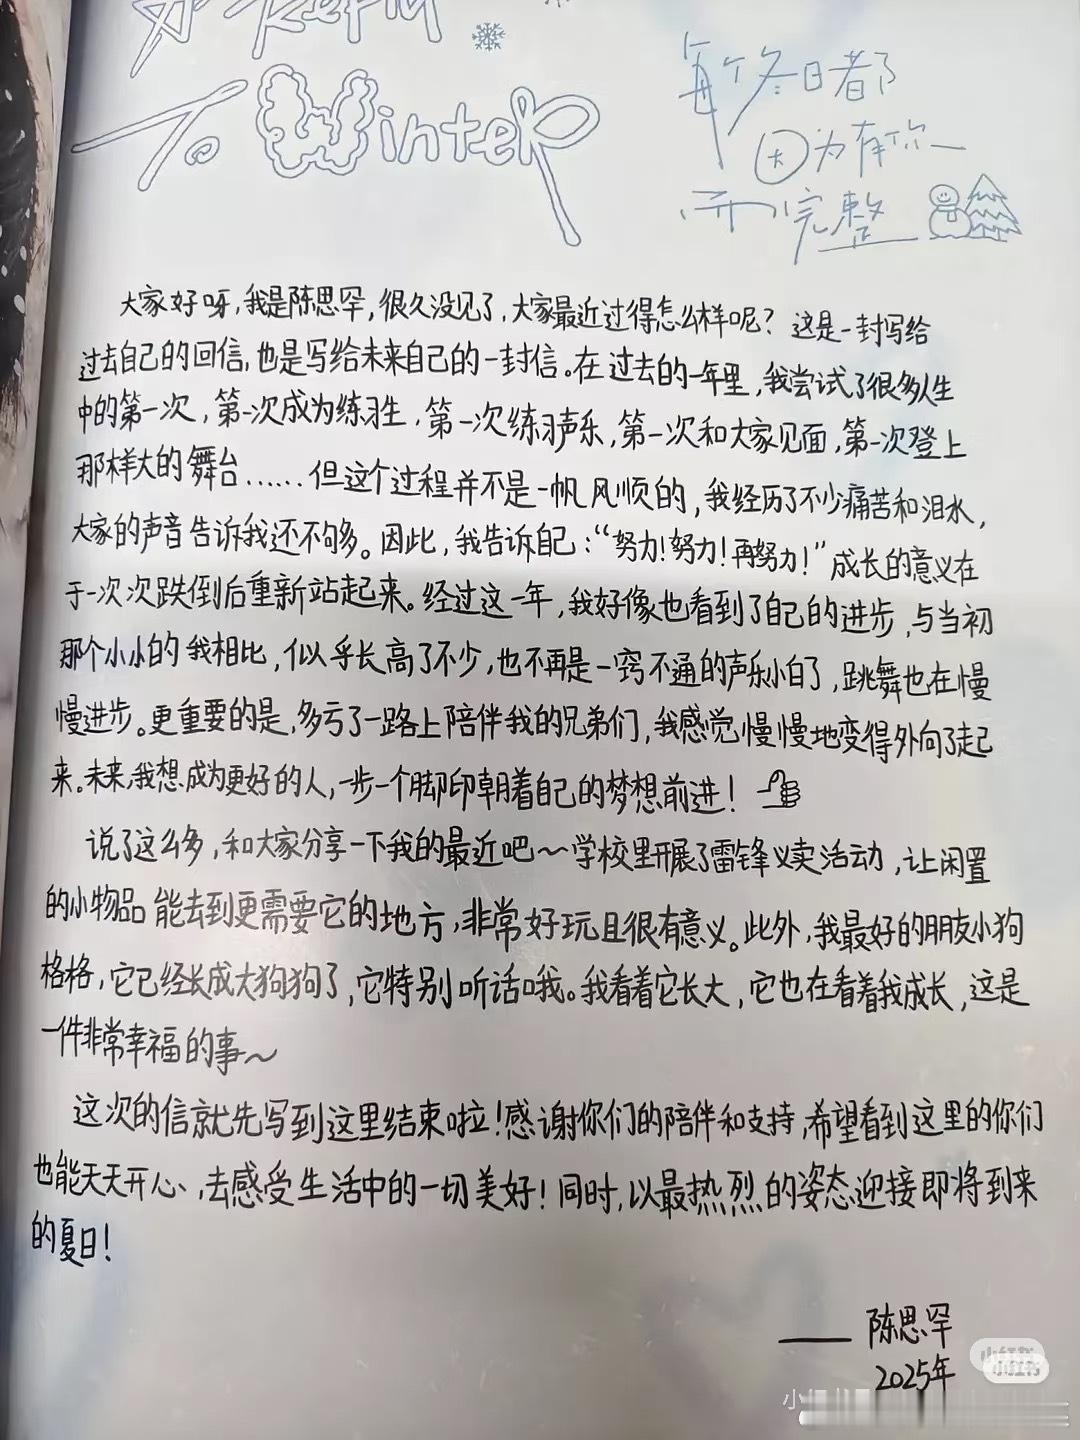 To Winter
每个冬日都
因为有你
而完整
大家好呀,我是陈思罕,很久没见了,大家最近过得怎么样呢?这是一封写给
过去自己的回信,也是写给未来自己的一封信。在过去的一年里,我尝试了很多人生
中的第一次,第一次成为练习生,第一次练习声乐,第一次和大家见面,第一次登上
那样大的舞台……但这个过程并不是一帆风顺的,我经历了不少痛苦和泪水,
大家的声音告诉我还不够。因此,我告诉自己:“努力!努力!再努力!”成长的意义在
于一次次跌倒后重新站起来。经过这一年,我好像也看到了自己的进步,与当初
那个小小的我相比,似乎长高了不少,也不再是一窍不通的声乐小白了,跳舞也在慢
慢进步。更重要的是,多亏了一路上陪伴我的兄弟们,我感觉慢慢地变得外向了起
来。未来,我想成为更好的人,一步一个脚印朝着自己的梦想前进!
说了这么多,和大家分享一下我的最近吧~学校里开展了雷锋义卖活动,让闲置
的小物品能去到更需要它的地方,非常好玩且很有意义。此外,我最好的朋友小狗
格格,它已经长成大狗狗了,它特别听话哦。我看着它长大,它也在看着我成长,这是
一件非常幸福的事~
这次的信就先写到这里结束啦!感谢你们的陪伴和支持,希望看到这里的你们
也能天天开心、去感受生活中的一切美好!同时,以最热烈的姿态迎接即将到来
的夏日!
——陈思罕
2025年
小红书
小红书